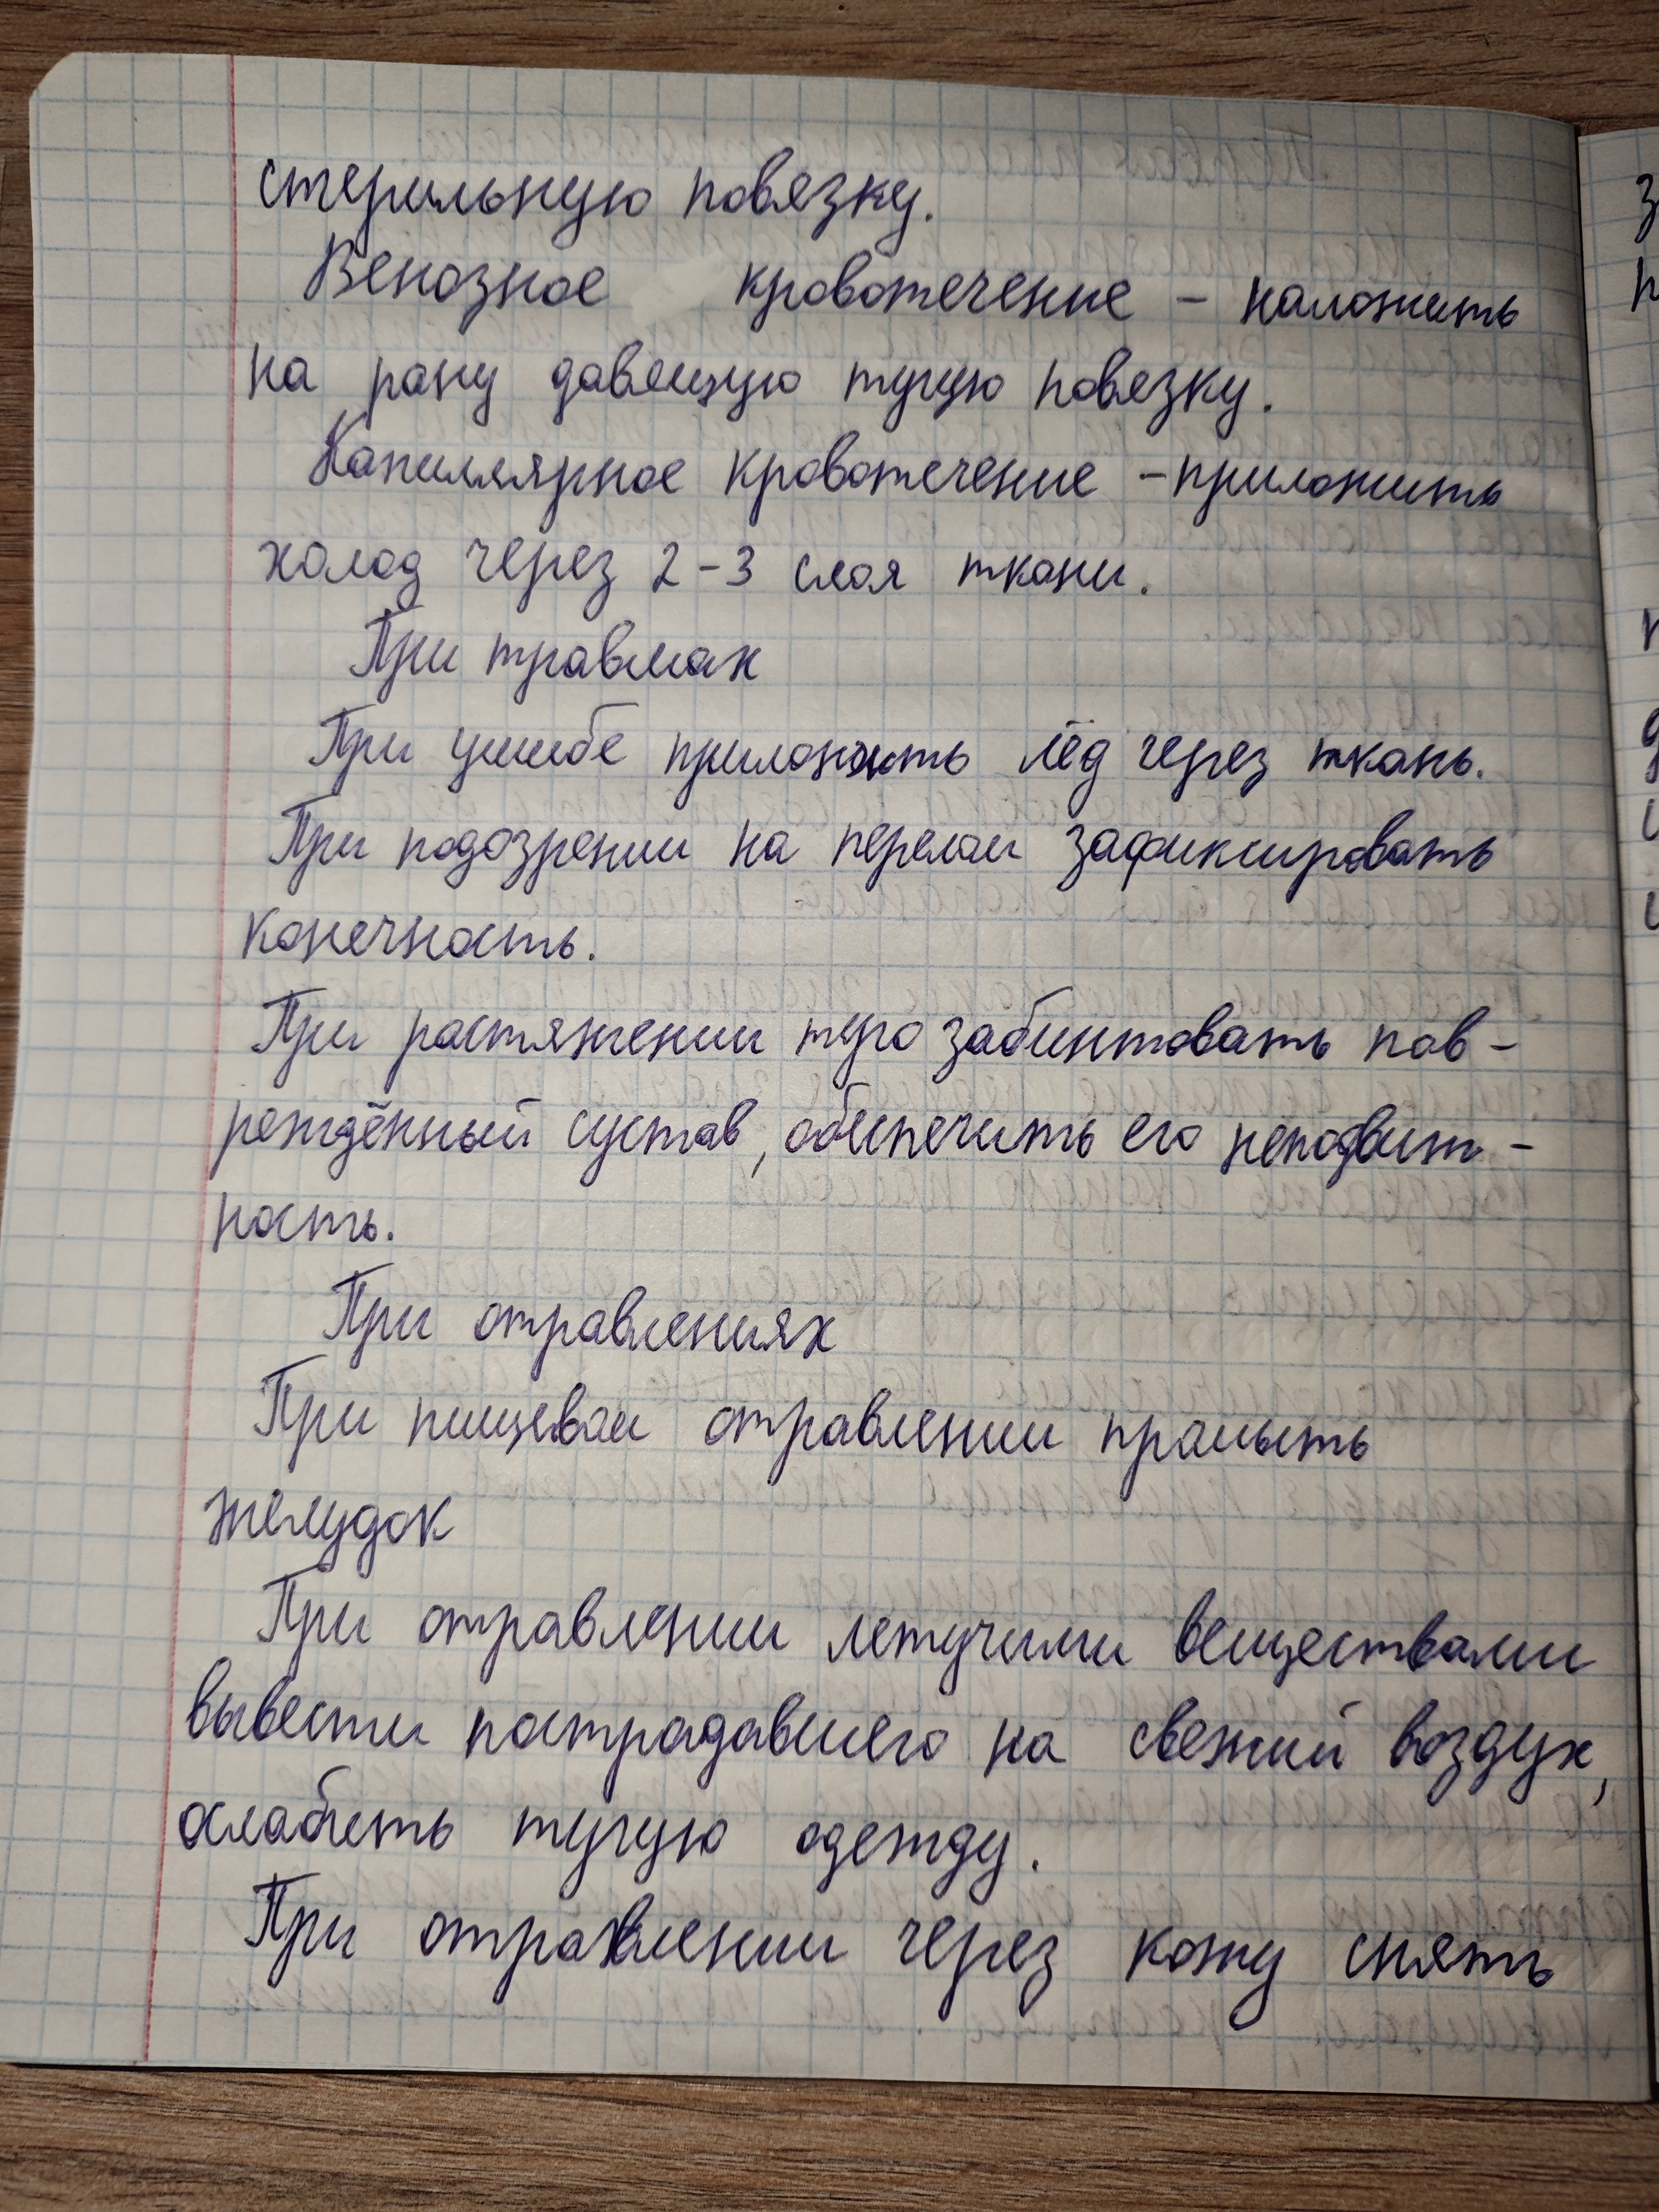 стерильную повязку.
Венозное кровотечение – наложить
на рану давящую тугую повязку.
Капиллярное кровотечение – приложить
холод через 2-3 слоя ткани.
При травмах
При ушибе приложить лёд через ткань.
При подозрении на перелом зафиксировать
конечность.
При растяжении туго забинтовать пов-
реждённый сустав, обеспечить его неподвиж-
ность.
При отравлениях
При пищевом отравлении промыть
желудок
При отравлении летучими веществами
вывести пострадавшего на свежий воздух,
ослабить тугую одежду.
При отравлении через кожу снять